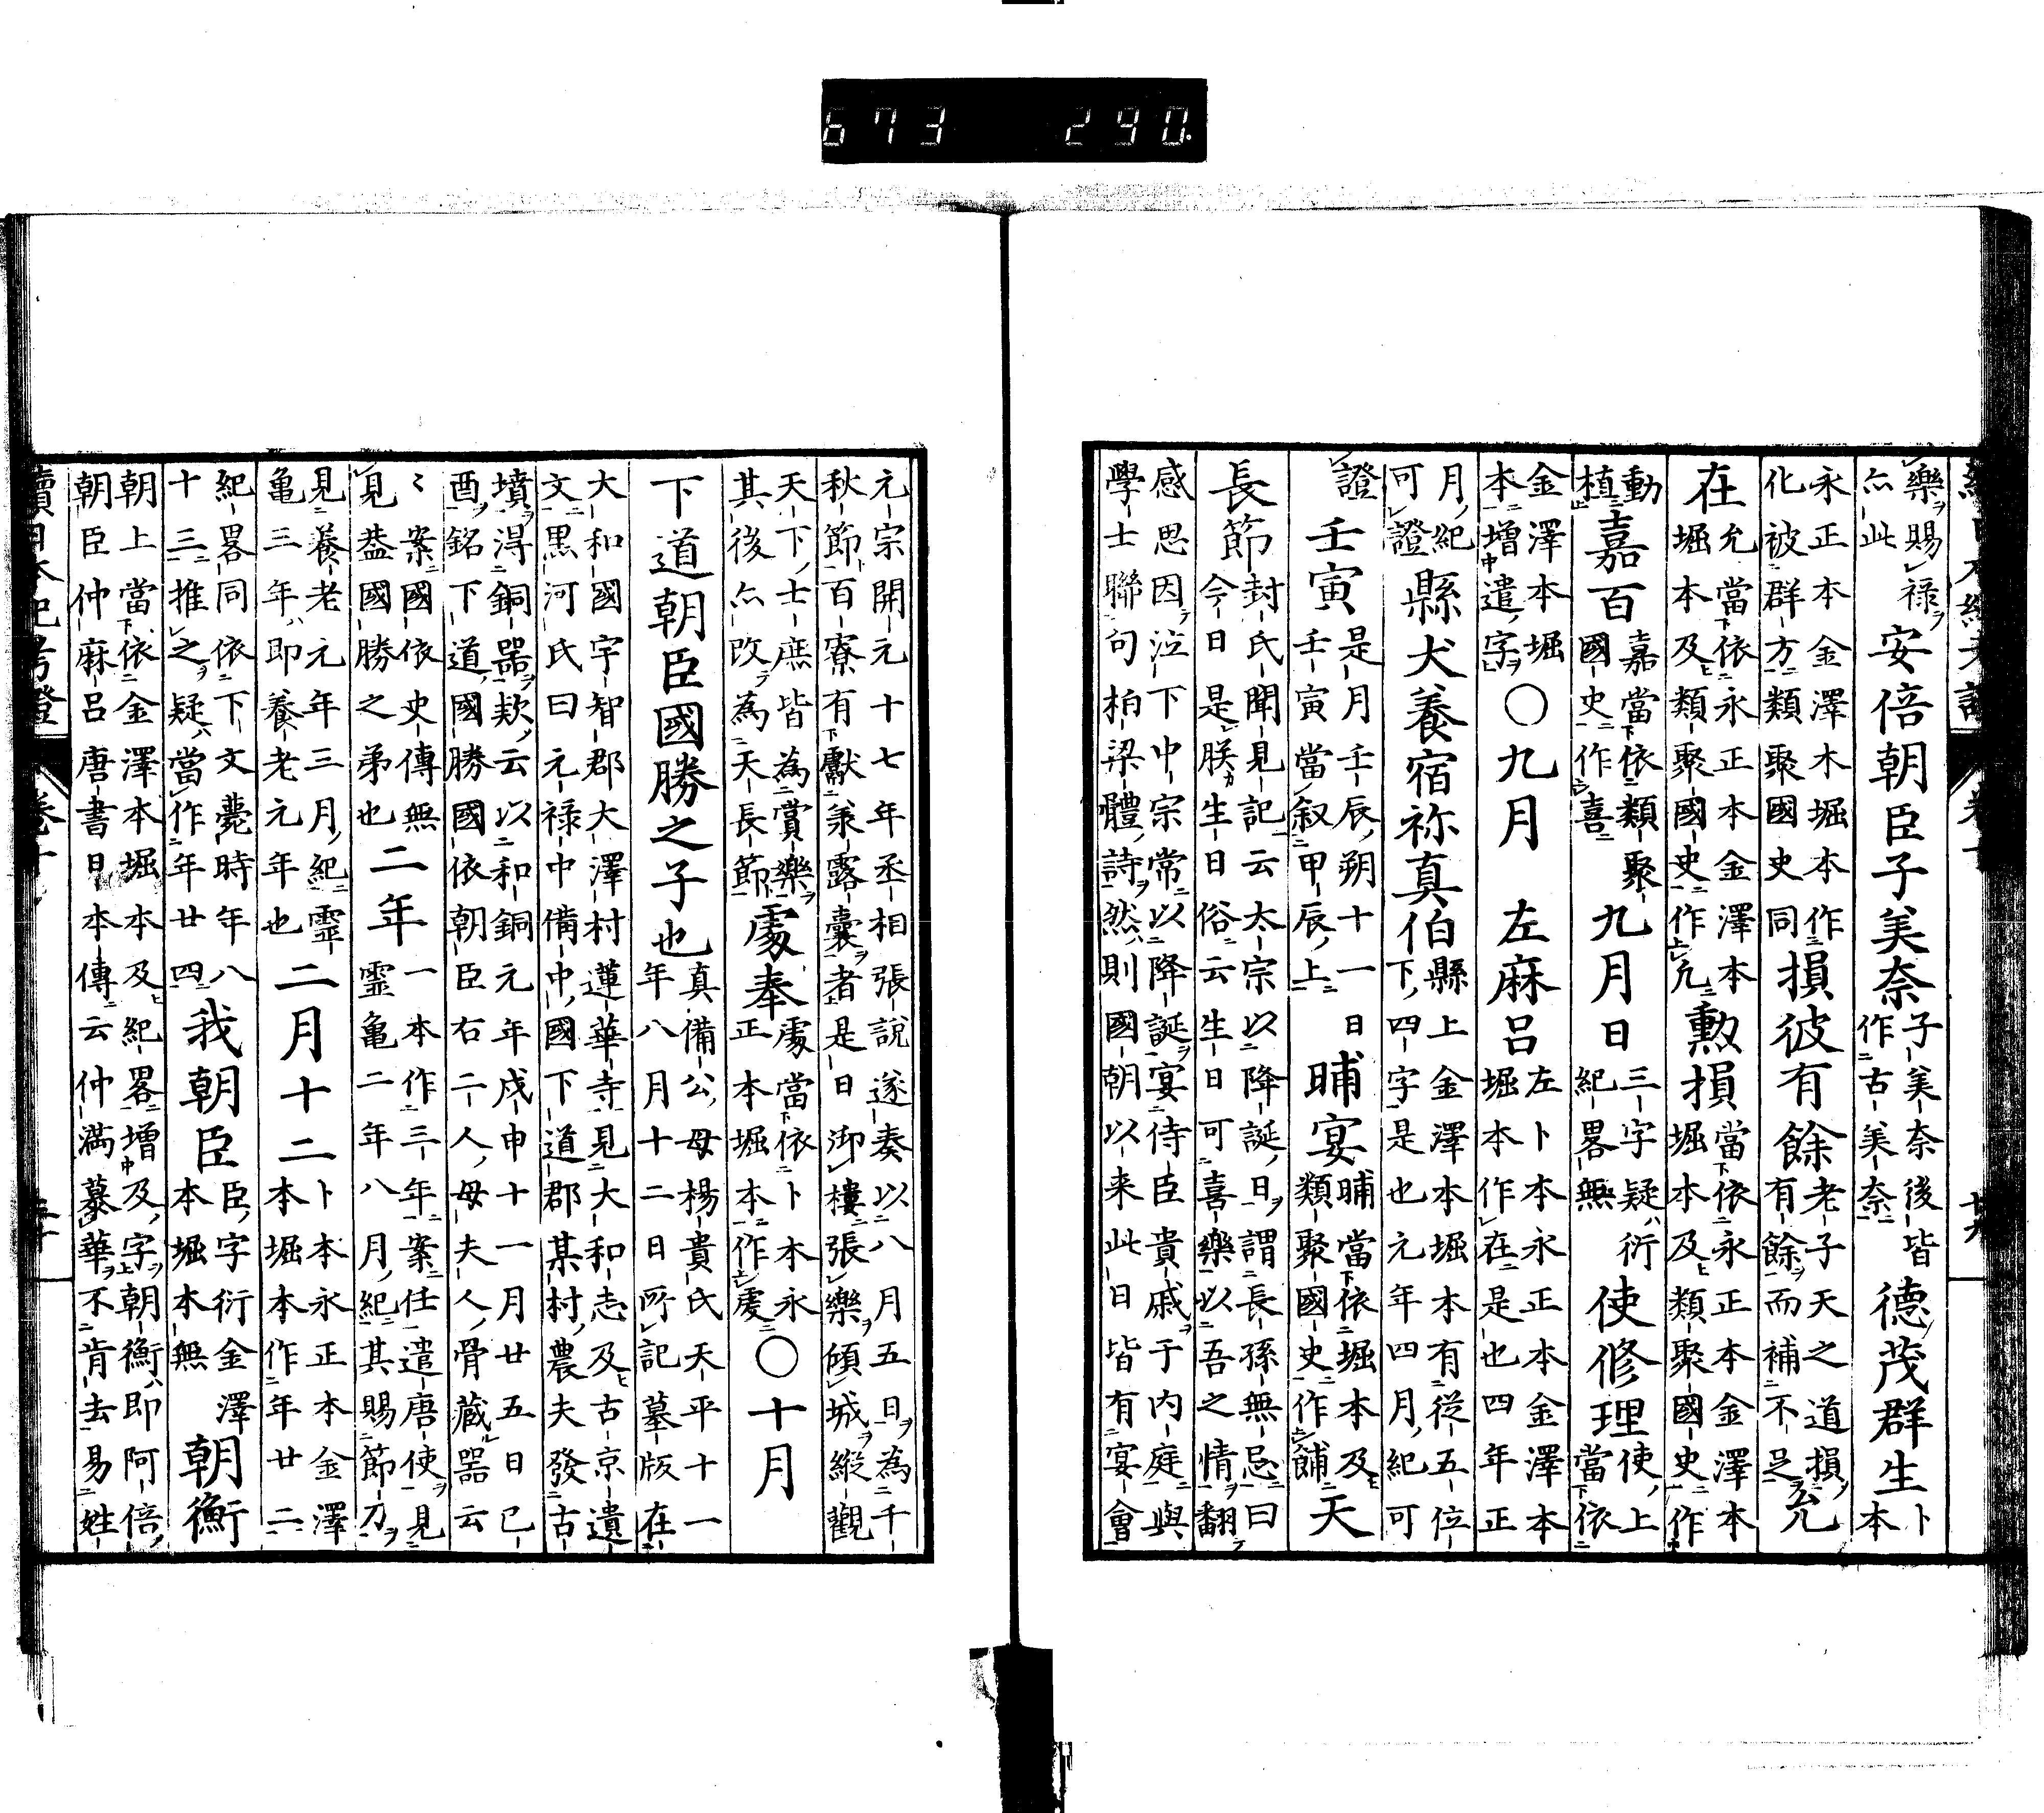 673 290.
樂賜祿亦此安倍朝臣子美奈子美奈後皆作古美奈德茂群生卜本
永正本金澤本堀本作化被群方類聚國史同損彼有餘老子天之道損有餘而補不足允
在允當依永正本金澤本堀本及類聚國史作允勲損當依永正本金澤本堀本及類聚國史作
動植嘉百嘉當依類聚國史作喜九月日三字疑衍紀畧無使修理使上當依
金澤本堀本增遣字〇九月左麻呂左卜本永正本金澤本堀本作在是也四年正
月紀可證縣犬養宿祢真伯縣上金澤本堀本有從五位下四字是也元年四月紀可
證壬寅是月壬辰朔十一日壬寅當叙甲辰上晡宴晡當依堀本及類聚國史作餔天
長節封氏聞見記云太宗以降誕日謂長孫無忌曰今日是朕生日俗云生日可喜樂以吾之情翻
感思因泣下中宗常以降誕宴侍臣貴戚于内庭與學士聯句柏梁體詩然則國朝以来此日皆有宴會
元宗開元十七年丞相張說遂奏以八月五日為千秋節百寮有獻承露囊者是日御樓張樂傾城縱觀
天下士庶皆為賞樂其後亦改為天長節䖏奉䖏當依卜本永正本堀本作虔〇十月
下道朝臣國勝之子也真備公母楊貴氏天平十一年八月十二日所記墓版在
大和國宇智郡大澤村蓮華寺見大和志及古京遺文黒河氏曰元祿中備中國下道郡某村農夫發古
墳得銅噐欵云以和銅元年戊申十一月廿五日已酉銘下道國勝國依朝臣右二人母夫人骨藏噐云
〻案國依史傳無見葢國勝之弟也二年一本作三年案任遣唐使見靈亀二年八月紀其賜節刀
見養老元年三月紀靈亀三年即養老元年也二月十二卜本永正本金澤本堀本作年廿二
紀畧同依下文薨時年八十三推之疑當作年廿四我朝臣臣字衍金澤本堀本無朝衡
朝上當依金澤本堀本及紀畧增及字朝衡即阿倍朝臣仲麻呂唐書日本傳云仲満慕華不肯去易姓
續日本紀考證 卷十